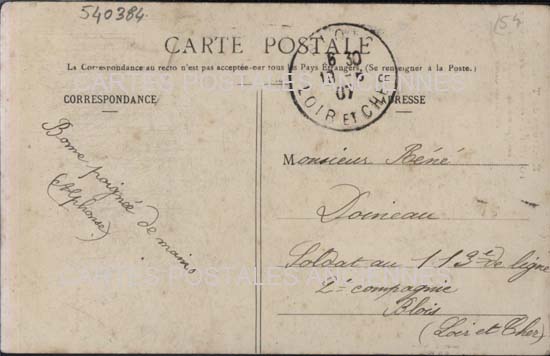 540384
154
CARTE POSTALE
La Correspondance au recto n'est pas acceptée par tous les Pays Étrangers. (Se renseigner à la Poste.)
CARTES POSTALES ANCIENNES
6 30
LOIR ET CHER
07
CORRESPONDANCE
ADRESSE
Bonne poignée de mains
(Alphonse)
Monsieur Réné
Doineau
Soldat au 113e de ligne
2e compagnie
Blois
(Loir et Cher)
CARTES POSTALES ANCIENNES